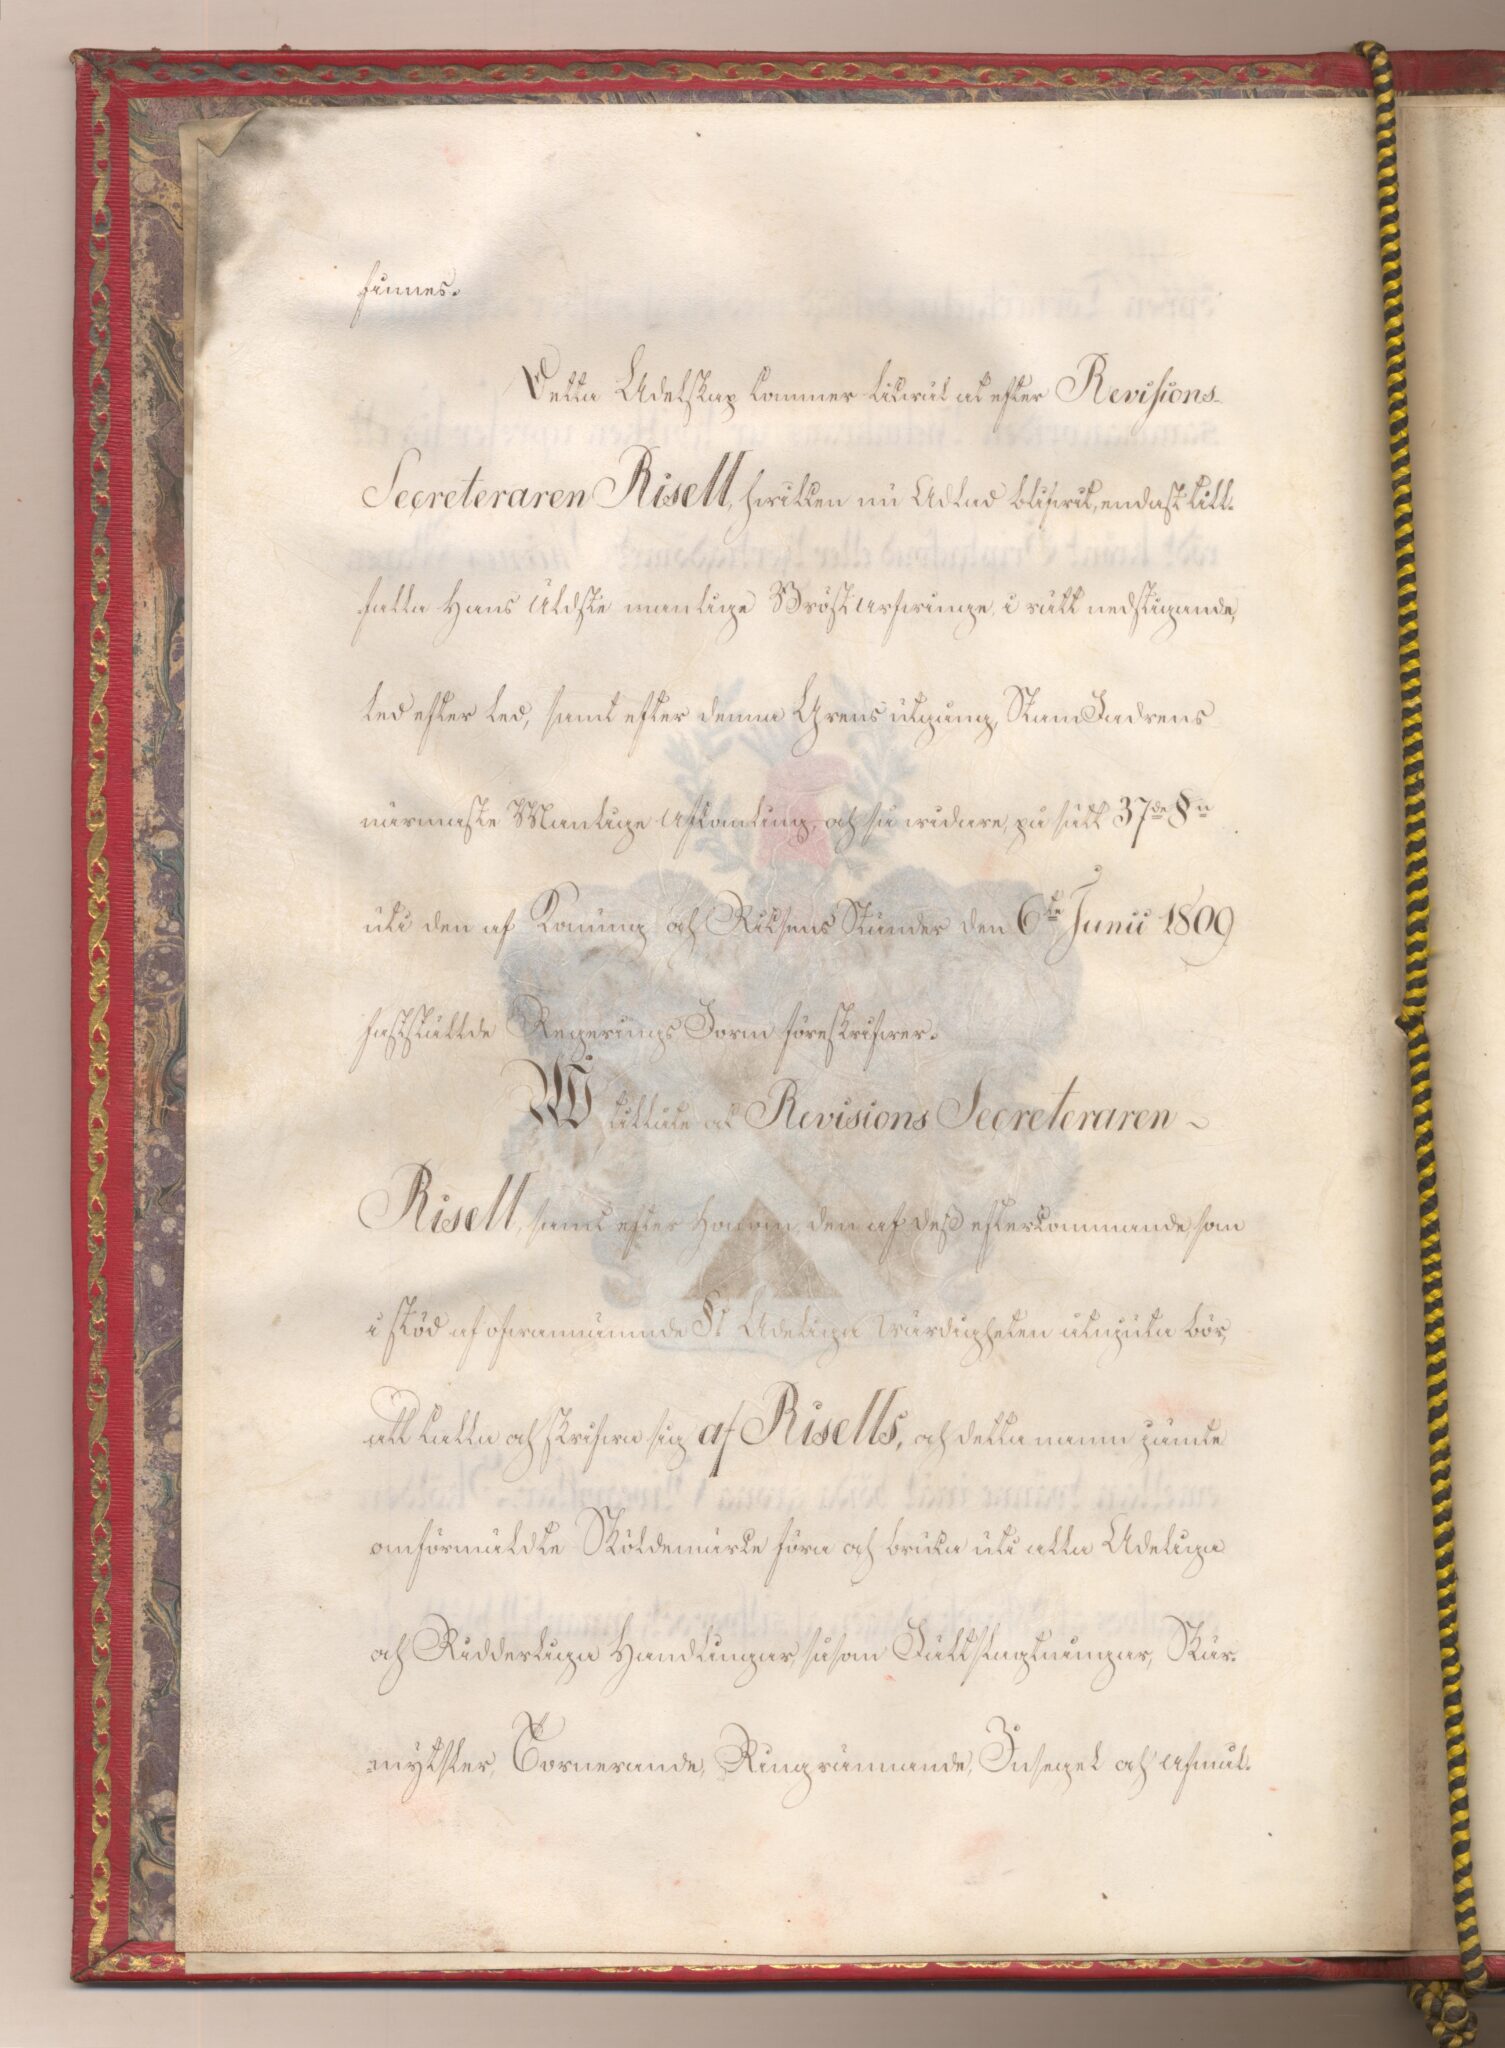 finnes.
Detta Adelskap kommer likwäl at efter Revisions-
Secreteraren Risell, hwilken nu Adlad blifwit, endast till-
falla Hans äldste manlige Bröst arfwinge, i rätt nedstigande,
led efter led, samt efter denna Grens utgång, Stam Fadrens
närmaste Manlige afkomling, och så widare, på sätt 37de §n
uti den af Konung och Riksens Ständer den 6te Junii 1809
fastställde Regerings Form föreskrifwer.
Wi tillåte at Revisions Secreteraren
Risell, samt efter Honom, den af dess efterkommande, som
i stöd af ofwannämnde §t Adeliga Wärdigheten åtnjuta bör,
att kalla och skrifwa sig af Risells, och detta namn jämte
omförmäldte Sköldemärke föra och bruka uti alla Adeliga
och Ridderliga Handlingar, såsom Fältslagtningar, Skär-
mytsler, Tornerande, Ringrännande, Insegel och afmål-